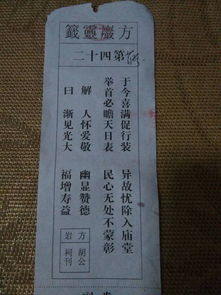 方巖靈籤
第四十二
于今喜满促行装 异故忧除入庙堂
举首必瞻天日表 民心无处不蒙彰
解 人怀爱敬 幽显赞德
曰 渐见光大 福增寿益
方 胡公
岩 祠刊